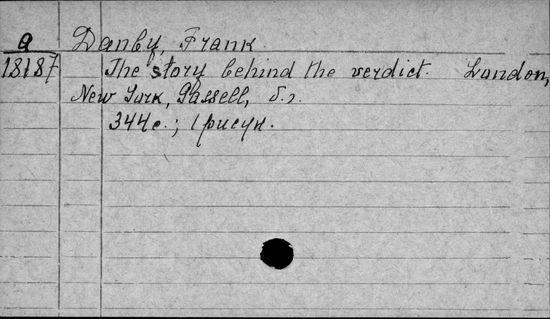 a Danby, Frank.
18187 The story behind the verdict. London,
New York, Cassell, б.г.
344 с.; 1 рисун.